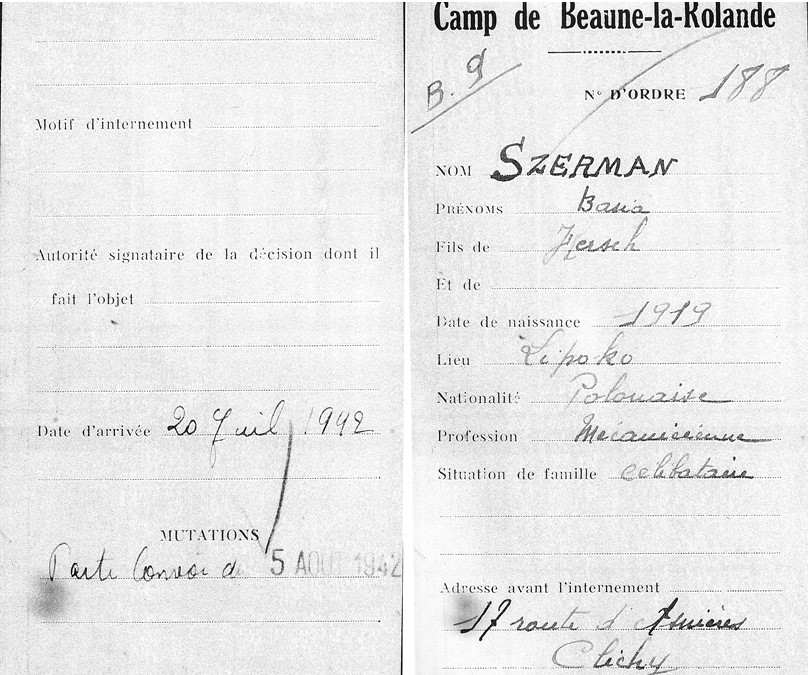 Motif d'internement
Autorité signataire de la décision dont il
fait l'objet
Date d'arrivée 20 Juil 1942
MUTATIONS
Parti Convoi du 5 AOUT 1942
Camp de Beaune-la-Rolande
B. 9
N° D'ORDRE 188
NOM SZERMAN
PRÉNOMS Basia
Fils de Hersch
Et de
Date de naissance 1919
Lieu Lipoko
Nationalité Polonaise
Profession Mécanicienne
Situation de famille celibataire
Adresse avant l'internement
17 route d'Asnières
Clichy